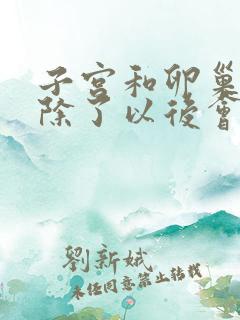 子宮和卵巢
除了以後會
劉新娥
未經同意禁止轉載